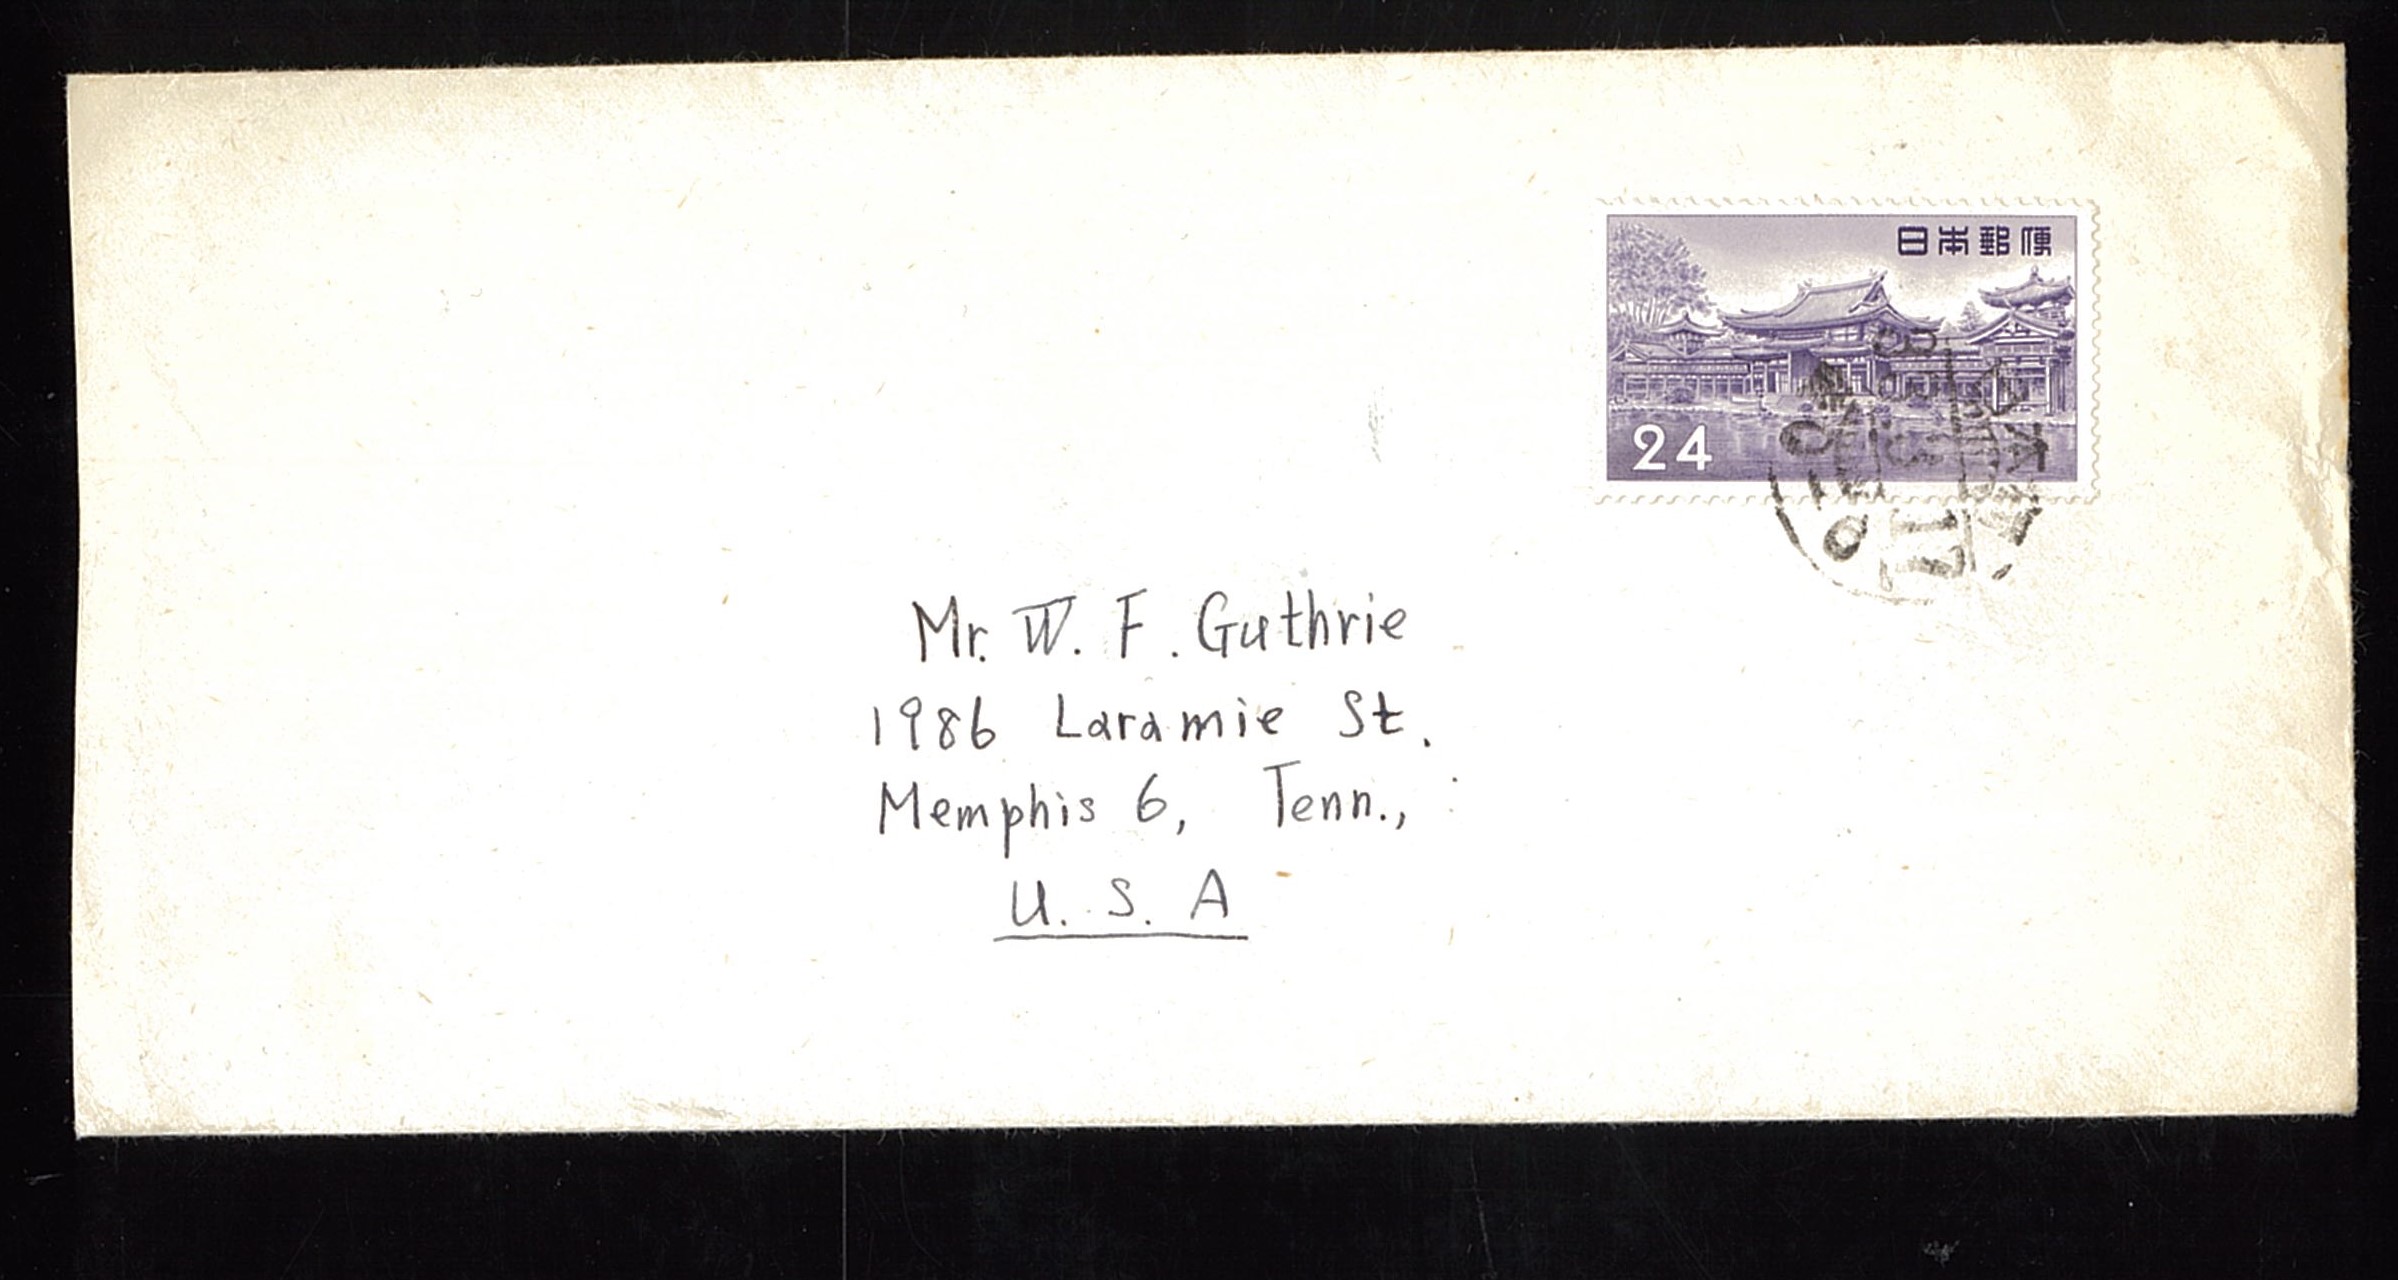 日本郵便
24
Mr. W. F. Guthrie
1986 Laramie St.
Memphis 6, Tenn.,
U. S. A